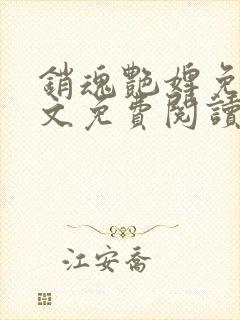 銷魂艷婢免
文免費閱讀
江安喬